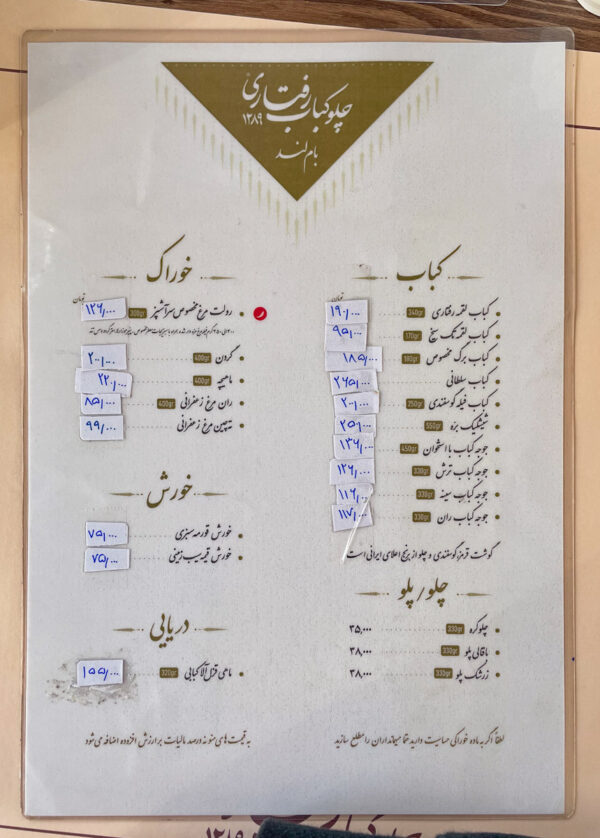 چلوکباب رفتاری
۱۲۸۹
بام لند
کباب
تومان
کباب لقمه رفتاری 340gr ۱۹۰٬۰۰۰
کباب لقمه تک سیخ 170gr ۹۵٬۰۰۰
کباب برگ مخصوص 180gr ۱۸۵٬۰۰۰
کباب سلطانی ۲۶۵٬۰۰۰
کباب فیله گوسفندی 250gr ۲۰۱٬۰۰۰
شیشلیک بره 550gr ۲۵۶٬۰۰۰
جوجه کباب با استخوان 450gr ۱۳۶٬۰۰۰
جوجه کباب ترش 330gr ۱۲۶٬۰۰۰
جوجه کباب سینه 330gr ۱۱۶٬۰۰۰
جوجه کباب ران 330gr ۱۱۷٬۰۰۰
گوشت قرمز گوسفندی و چلو از برنج اعلای ایرانی است
چلو / پلو
چلوکره 330gr ۳۵,۰۰۰
باقالی پلو 330gr ۳۸,۰۰۰
زرشک پلو 330gr ۳۸,۰۰۰
لطفاً اگر به ماده خوراکی حساسیت دارید حتما میهمانداران را مطلع سازید
خوراک
تومان
ر
رولت مرغ مخصوص سرآشپز 300gr ۱۲۶٬۰۰۰
گردن 400gr ۲۰۰٬۰۰۰
ماهیچه 400gr ۲۲۰٬۰۰۰
ران مرغ زعفرانی 400gr ۸۵٬۰۰۰
ته‌چین مرغ زعفرانی ۹۹٬۰۰۰
خورش
خورش قورمه سبزی ۷۵٬۰۰۰
خورش قیمه سیب زمینی ۷۵٬۰۰۰
دریایی
ماهی قزل آلا کبابی 320gr ۱۵۵٬۰۰۰
به قیمت های منو نه درصد مالیات بر ارزش افزوده اضافه می شود